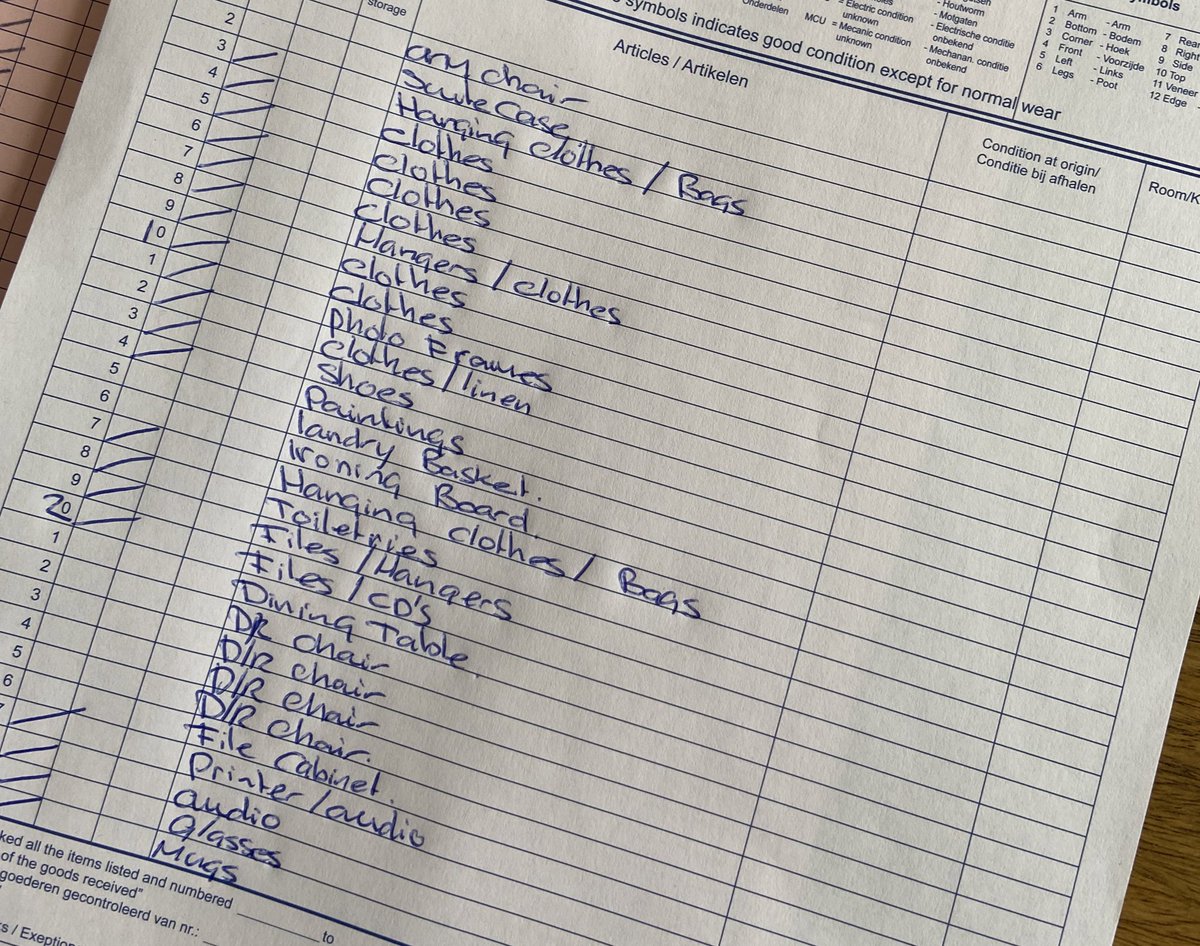 = Electric condition
unknown
MCU = Mechanic condition
unknown
Onderdelen
- Houtworm
- Motgaten
- Electrische conditie
onbekend
- Mechanan. conditie
onbekend
symbols
1 Arm - Arm
2 Bottom - Bodem
3 Corner - Hoek
4 Front - Voorzijde
5 Left - Links
6 Legs - Poot
7 Rear
8 Right
9 Side
10 Top
11 Veneer
12 Edge -
symbols indicates good condition except for normal wear
storage
Articles / Artikelen
Condition at origin/
Conditie bij afhalen
Room/K
2 any chair
3 Suite Case.
4 Hanging clothes / Bags
5 Clothes
6 Clothes
7 Clothes
8 Clothes
9 Hangers / clothes
10 Clothes
1 Clothes
2 Photo Frames
3 Clothes / linen
4 Shoes
5 Paintings
6 landry Basket.
7 Ironing Board.
8 Hanging clothes / Bags
9 Toiletries
20 Files / Hangers
1 Files / CD's
2 Dining Table.
3 DR Chair
4 D/R Chair
5 D/R Chair
6 D/R Chair.
7 File Cabinet.
Printer / audio
audio
Glasses
Mugs
ked all the items listed and numbered
of the goods received"
goederen gecontroleerd van nr.: to
s / Exeption